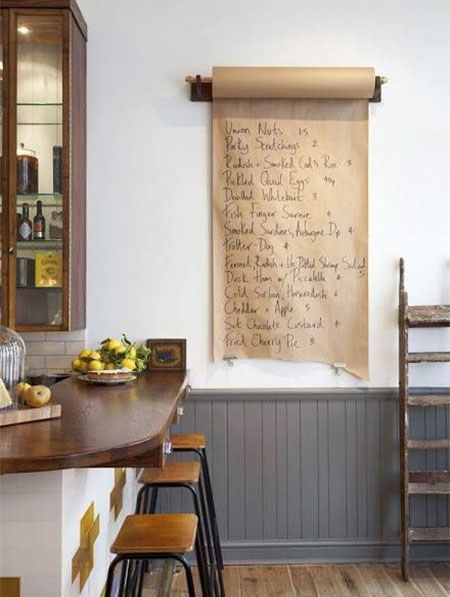 Union Nuts 1.5
Porky Scratchings 2
Radish + Smoked Cods Roe 3
Pickled Quail Eggs 40p
Devilled Whitebait 3
Fish Finger Sarnie 4
Smoked Sardines, Aubergine Dip 4
Trotter Dog 4
Fennel, Radish + Potted Shrimp Salad
Duck Ham w/ Piccalilli 4
Cold Sirloin, Horseradish 4
Cheddar + Apple 5
Set Chocolate Custard 4
Fried Cherry Pie 3